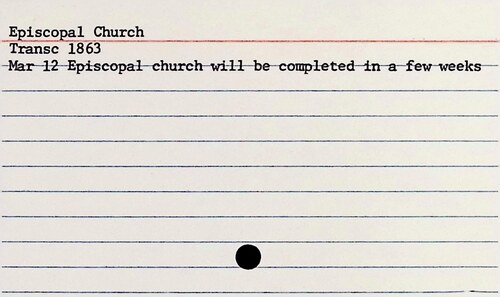 Episcopal Church
Transc 1863
Mar 12 Episcopal church will be completed in a few weeks